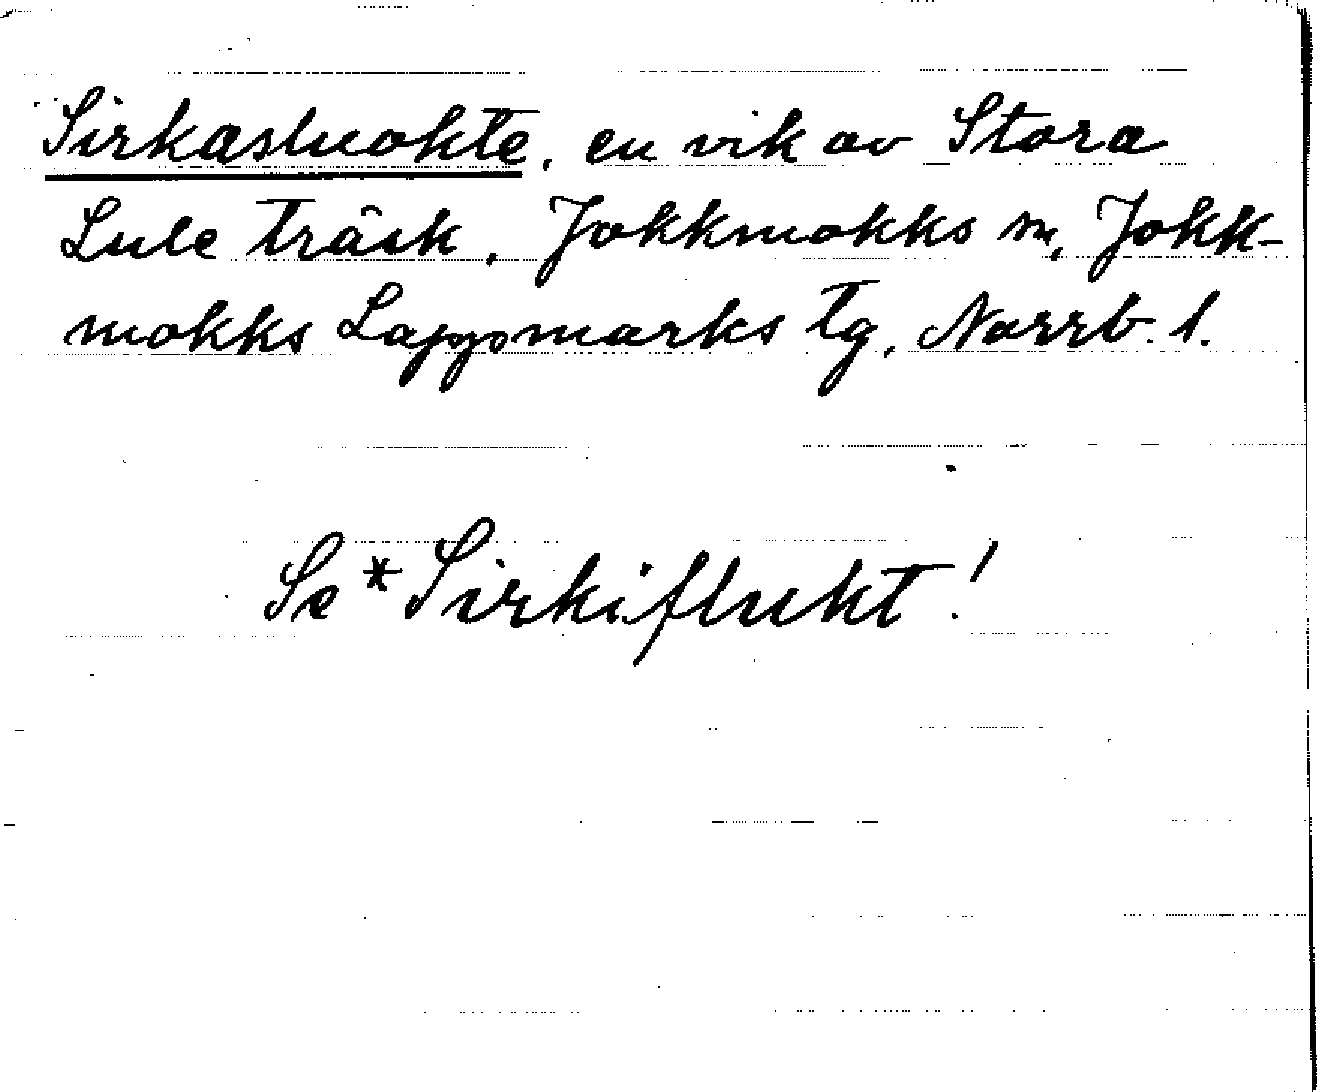 Sirkasluokte, en vik av Stora
Lule träsk, Jokkmokks sn, Jokk-
mokks Lappmarks tg, Norrb. l.
Se *Sirkiflukt!